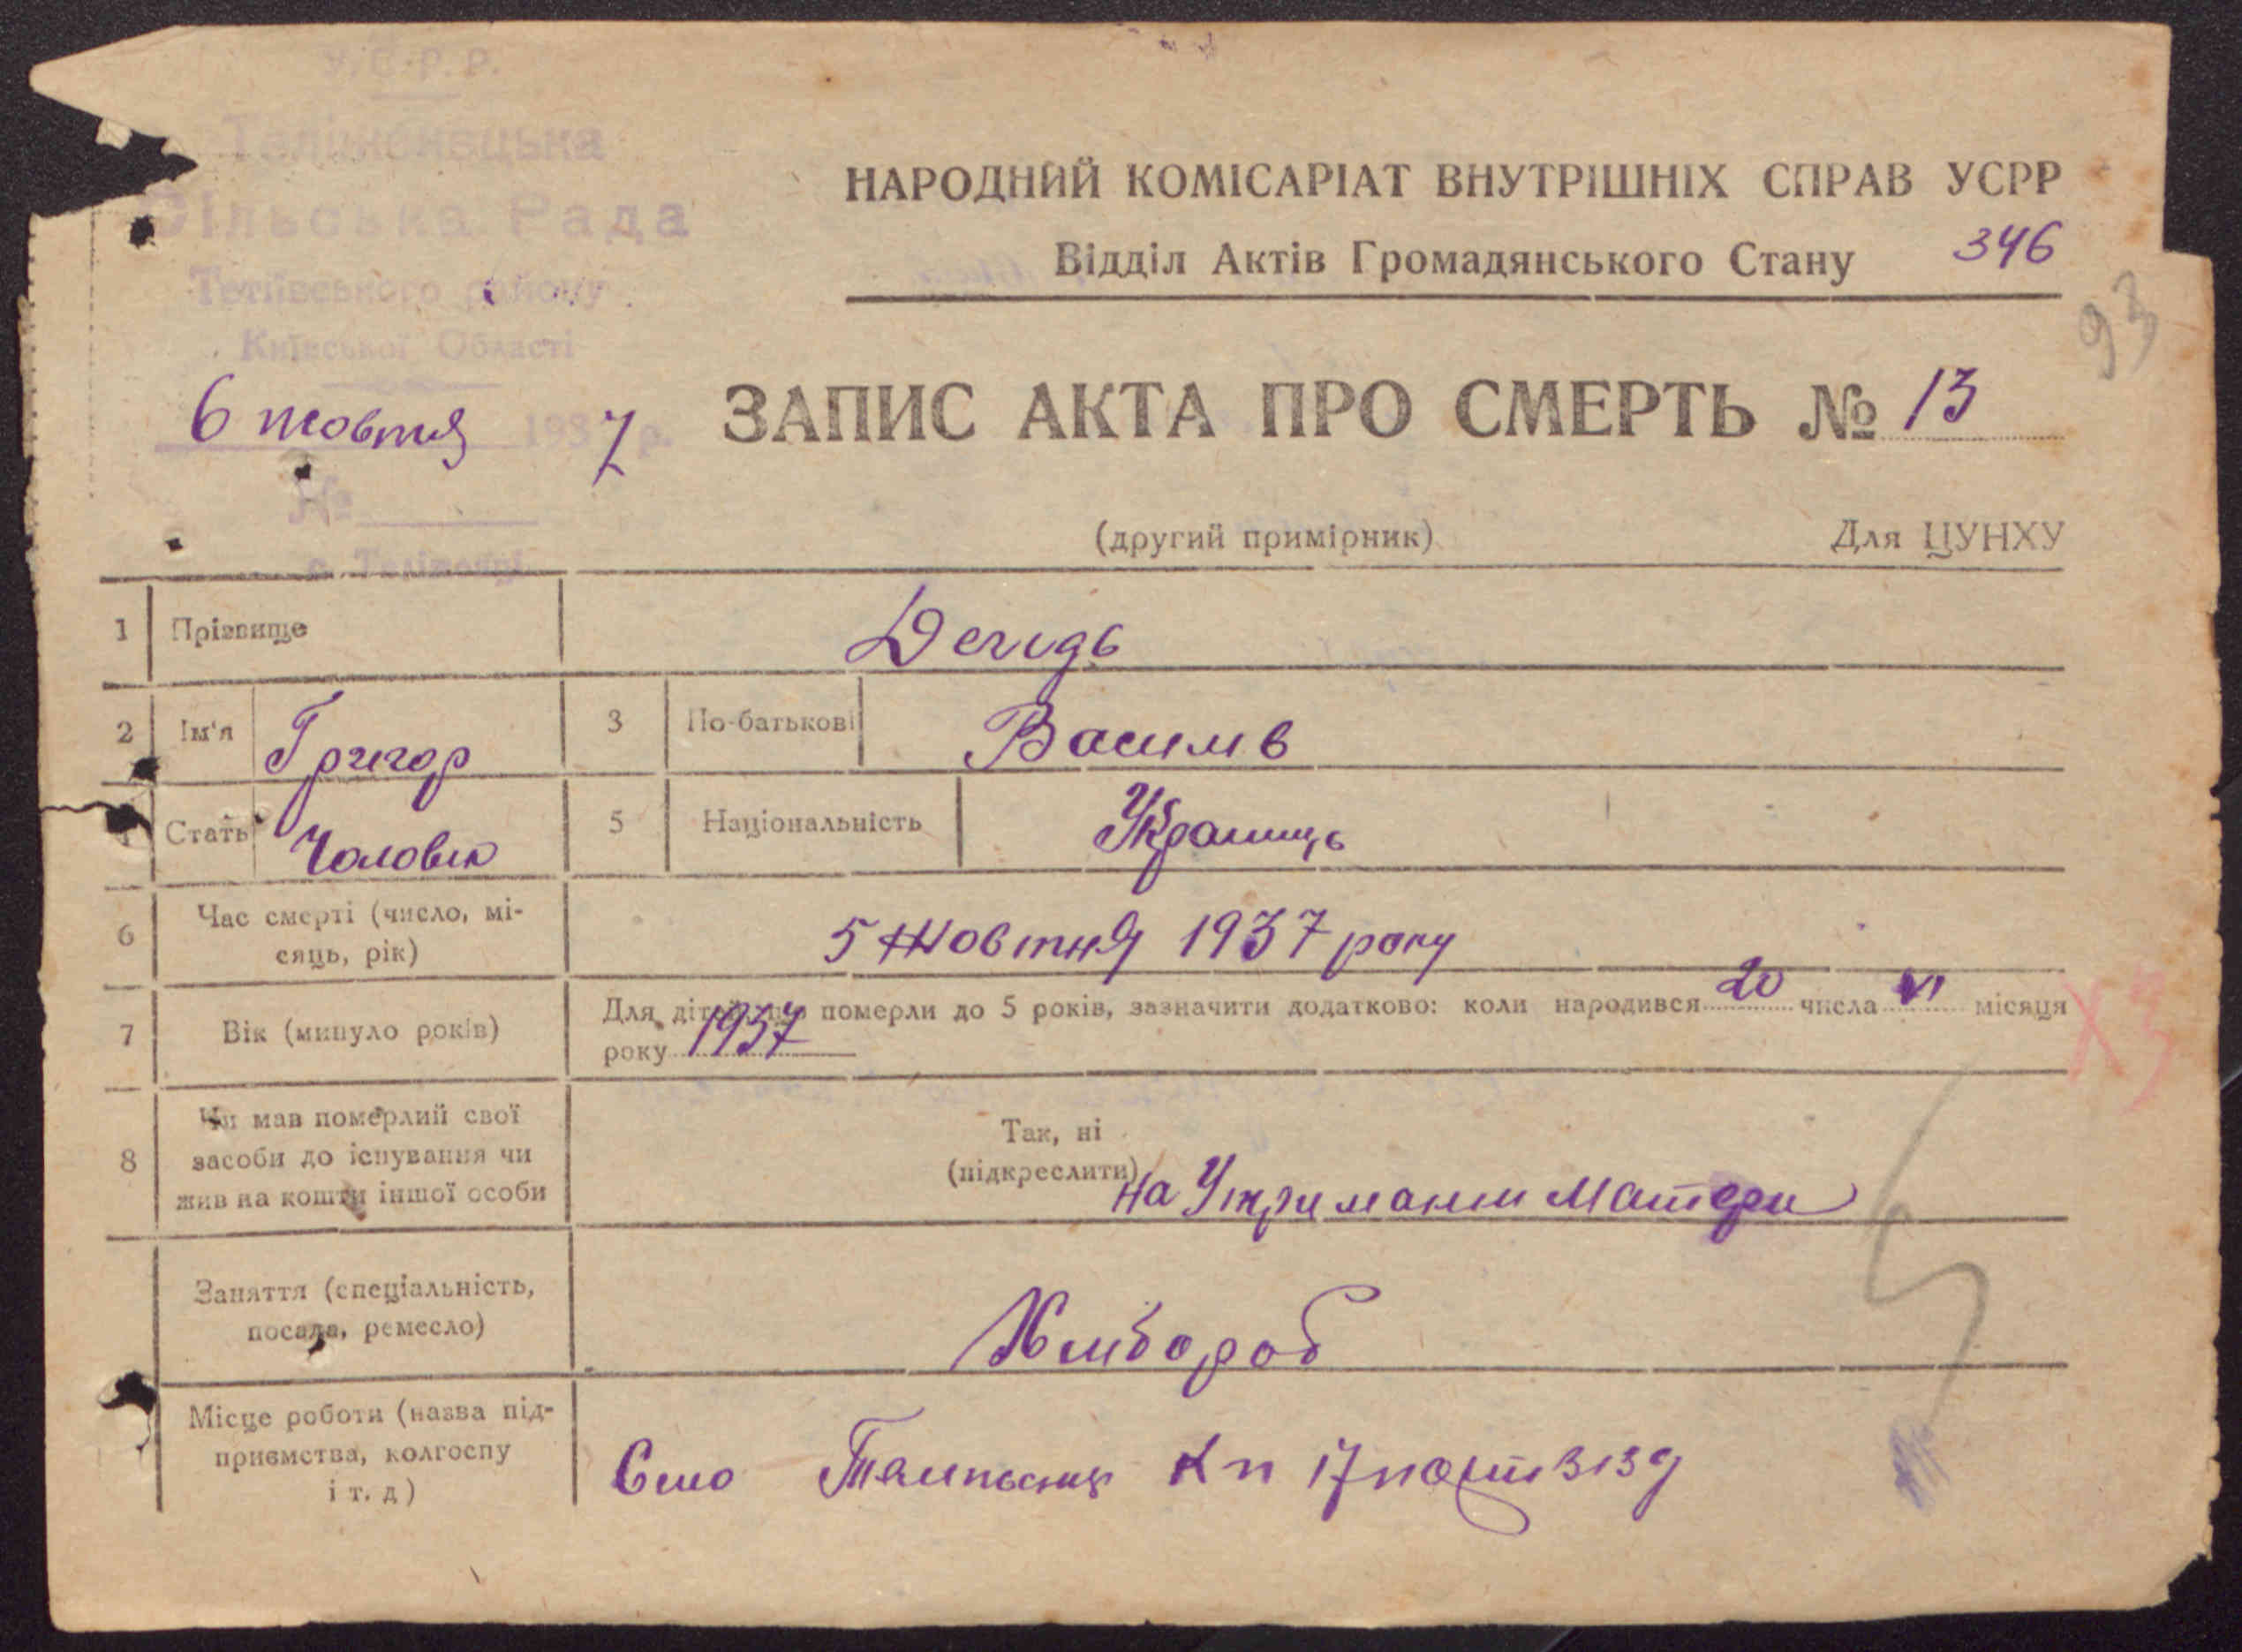 У.С.Р.Р.
Теліженецька
Сільська Рада
Тетіївського району
Київської Області
6 жовтня 1937 р.
№
с. Теліженці
НАРОДНИЙ КОМІСАРІАТ ВНУТРІШНІХ СПРАВ УСРР
Відділ Актів Громадянського Стану 346
93
ЗАПИС АКТА ПРО СМЕРТЬ № 13
(другий примірник) Для ЦУНХУ
1 Прізвище
2 Ім'я Григор 3 По-батькові Василів
4 Стать Чоловік 5 Національність Українць
6 Час смерті (число, мі-
сяць, рік)
5 Жовтня 1937 року
7 Вік (минуло років)
Для дітей, що померли до 5 років, зазначити додатково: коли народився 20 числа VI місяця
року 1937
8 Чи мав померлий свої
засоби до існування чи
жив на кошти іншої особи
Так, ні
(підкреслити) на Утриманні Матери
Заняття (спеціальність,
посада, ремесло)
Хлібороб
Місце роботи (назва під-
приємства, колгоспу
і т. д)
Село Кп 17 парт